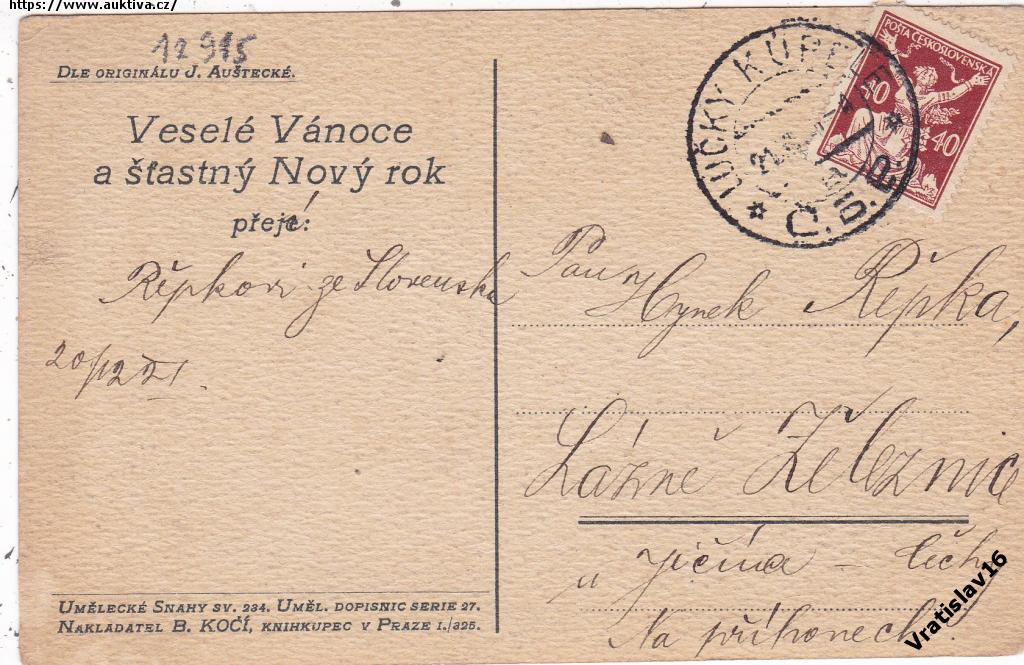 https://www.auktiva.cz/
12915
DLE ORIGINÁLU J. AUŠTECKÉ.
Veselé Vánoce
a šťastný Nový rok
přejí:
Řepkovi ze Slovenska
20/12 21.
UMĚLECKÉ SNAHY SV. 234. UMĚL. DOPISNIC SERIE 27.
NAKLADATEL B. KOČÍ, KNIHKUPEC V PRAZE I./325.
POŠTA ČESKOSLOVENSKÁ
40 40
LÚČKY KÚPELE
Č.S.R.
Pan
Hynek Řepka,
Lázně Železnice
u Jičína – Čechy
Na příhonech.
Vratislav16